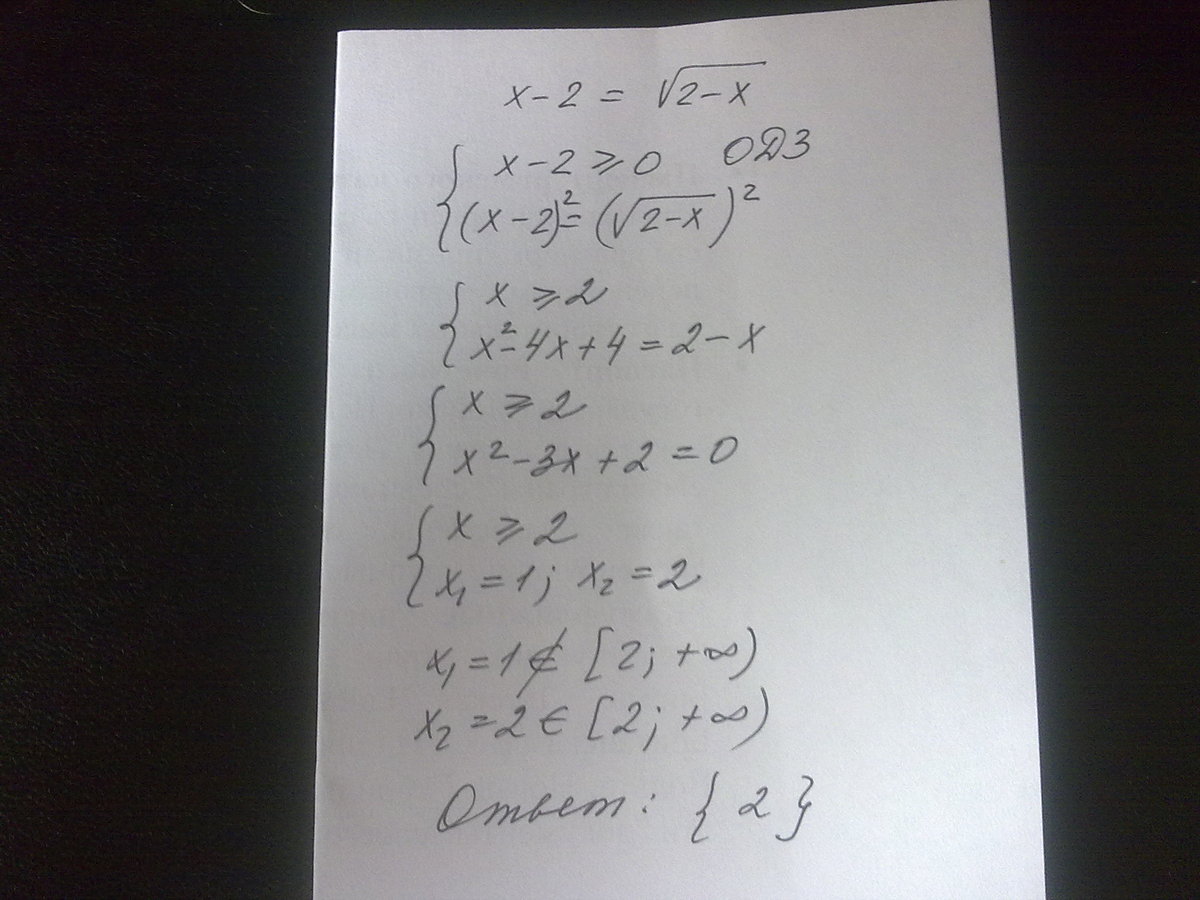 x-2 = √(2-x)
{ x-2 ⩾ 0 ОДЗ
{ (x-2)² = (√(2-x))²
{ x ⩾ 2
{ x²-4x+4 = 2-x
{ x ⩾ 2
{ x²-3x+2 = 0
{ x ⩾ 2
{ x₁ = 1; x₂ = 2
x₁ = 1 ∉ [2; +∞)
x₂ = 2 ∈ [2; +∞)
Ответ: {2}